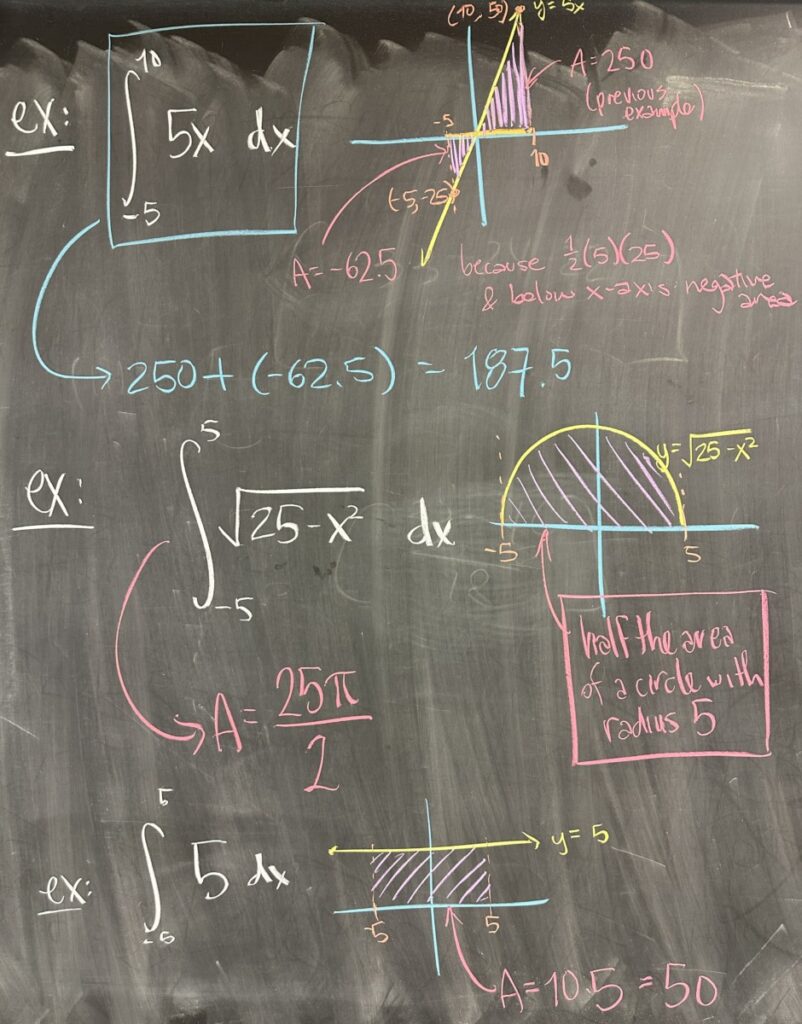 ex: ∫_{-5}^{10} 5x dx
(10, 50) y=5x
A=250
(previous
example)
-5
10
(-5,-25)
A=-62.5
because ½(5)(25)
& below x-axis: negative
area
250+(-62.5) = 187.5
ex: ∫_{-5}^{5} √(25-x²) dx
y=√(25-x²)
-5
5
half the area
of a circle with
radius 5
A= 25π/2
ex: ∫_{-5}^{5} 5 dx
y=5
-5
5
A=10·5=50